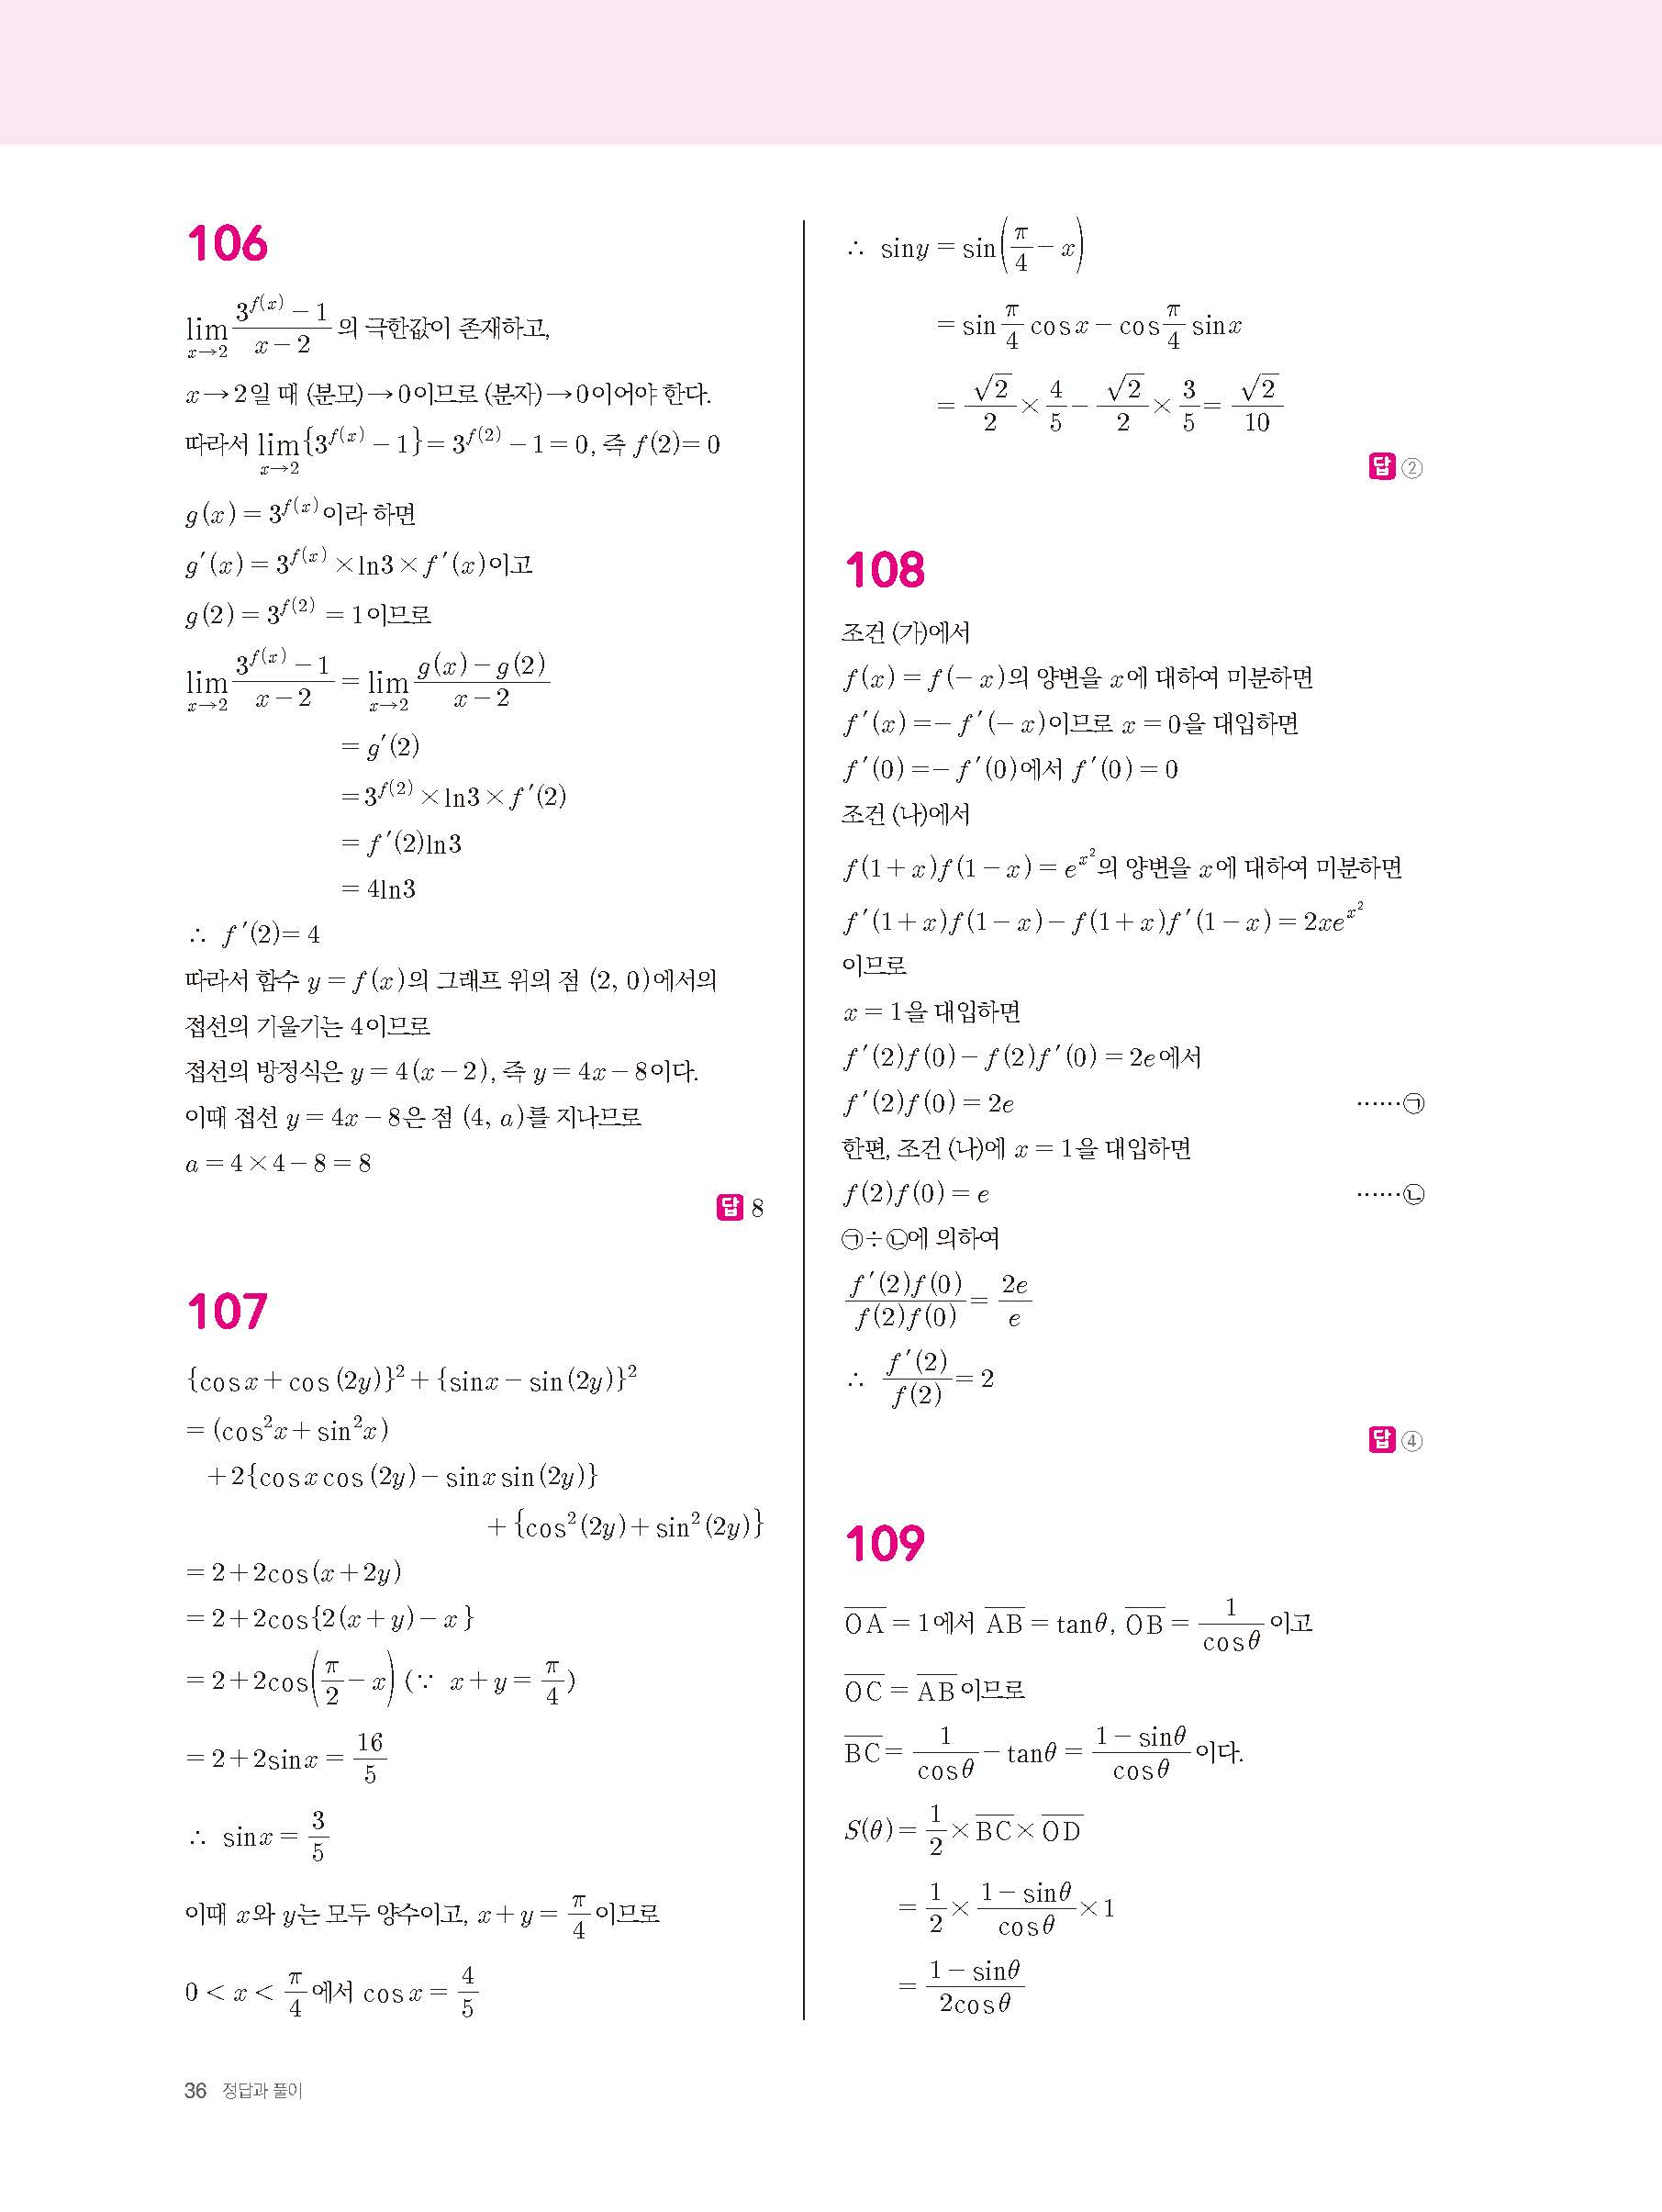 106
lim_{x→2} (3^{f(x)} − 1)/(x − 2) 의 극한값이 존재하고,
x → 2일 때 (분모) → 0이므로 (분자) → 0이어야 한다.
따라서 lim_{x→2} {3^{f(x)} − 1} = 3^{f(2)} − 1 = 0, 즉 f(2) = 0
g(x) = 3^{f(x)}이라 하면
g′(x) = 3^{f(x)} × ln3 × f′(x)이고
g(2) = 3^{f(2)} = 1이므로
lim_{x→2} (3^{f(x)} − 1)/(x − 2) = lim_{x→2} (g(x) − g(2))/(x − 2)
= g′(2)
= 3^{f(2)} × ln3 × f′(2)
= f′(2)ln3
= 4ln3
∴ f′(2) = 4
따라서 함수 y = f(x)의 그래프 위의 점 (2, 0)에서의
접선의 기울기는 4이므로
접선의 방정식은 y = 4(x − 2), 즉 y = 4x − 8이다.
이때 접선 y = 4x − 8은 점 (4, a)를 지나므로
a = 4 × 4 − 8 = 8
답 8
107
{cosx + cos(2y)}² + {sinx − sin(2y)}²
= (cos²x + sin²x)
+ 2{cosxcos(2y) − sinxsin(2y)}
+ {cos²(2y) + sin²(2y)}
= 2 + 2cos(x + 2y)
= 2 + 2cos{2(x + y) − x}
= 2 + 2cos(π/2 − x) (∵ x + y = π/4)
= 2 + 2sinx = 16/5
∴ sinx = 3/5
이때 x와 y는 모두 양수이고, x + y = π/4 이므로
0 < x < π/4 에서 cosx = 4/5
∴ siny = sin(π/4 − x)
= sin π/4 cosx − cos π/4 sinx
= √2/2 × 4/5 − √2/2 × 3/5 = √2/10
답 ②
108
조건 (가)에서
f(x) = f(− x)의 양변을 x에 대하여 미분하면
f′(x) = − f′(− x)이므로 x = 0을 대입하면
f′(0) = − f′(0)에서 f′(0) = 0
조건 (나)에서
f(1 + x)f(1 − x) = e^{x²}의 양변을 x에 대하여 미분하면
f′(1 + x)f(1 − x) − f(1 + x)f′(1 − x) = 2xe^{x²}
이므로
x = 1을 대입하면
f′(2)f(0) − f(2)f′(0) = 2e에서
f′(2)f(0) = 2e ⋯⋯㉠
한편, 조건 (나)에 x = 1을 대입하면
f(2)f(0) = e ⋯⋯㉡
㉠÷㉡에 의하여
f′(2)f(0)/f(2)f(0) = 2e/e
∴ f′(2)/f(2) = 2
답 ④
109
O̅A̅ = 1에서 A̅B̅ = tanθ, O̅B̅ = 1/cosθ 이고
O̅C̅ = A̅B̅ 이므로
B̅C̅ = 1/cosθ − tanθ = (1 − sinθ)/cosθ 이다.
S(θ) = 1/2 × B̅C̅ × O̅D̅
= 1/2 × (1 − sinθ)/cosθ × 1
= (1 − sinθ)/2cosθ
36 정답과 풀이